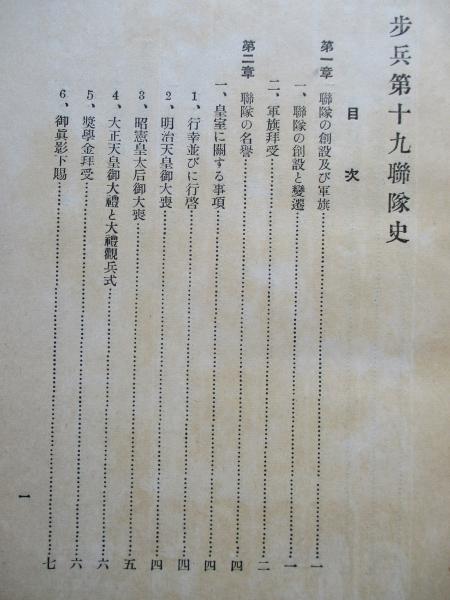 步兵第十九聯隊史
目次
第一章 聯隊の創設及び軍旗……一
一、聯隊の創設と變遷……一
二、軍旗拜受……二
第二章 聯隊の名譽……四
一、皇室に關する事項……四
1、行幸並びに行啓……四
2、明治天皇御大喪……四
3、昭憲皇太后御大喪……五
4、大正天皇御大禮と大禮觀兵式……六
5、奬學金拜受……六
6、御眞影下賜……七
一